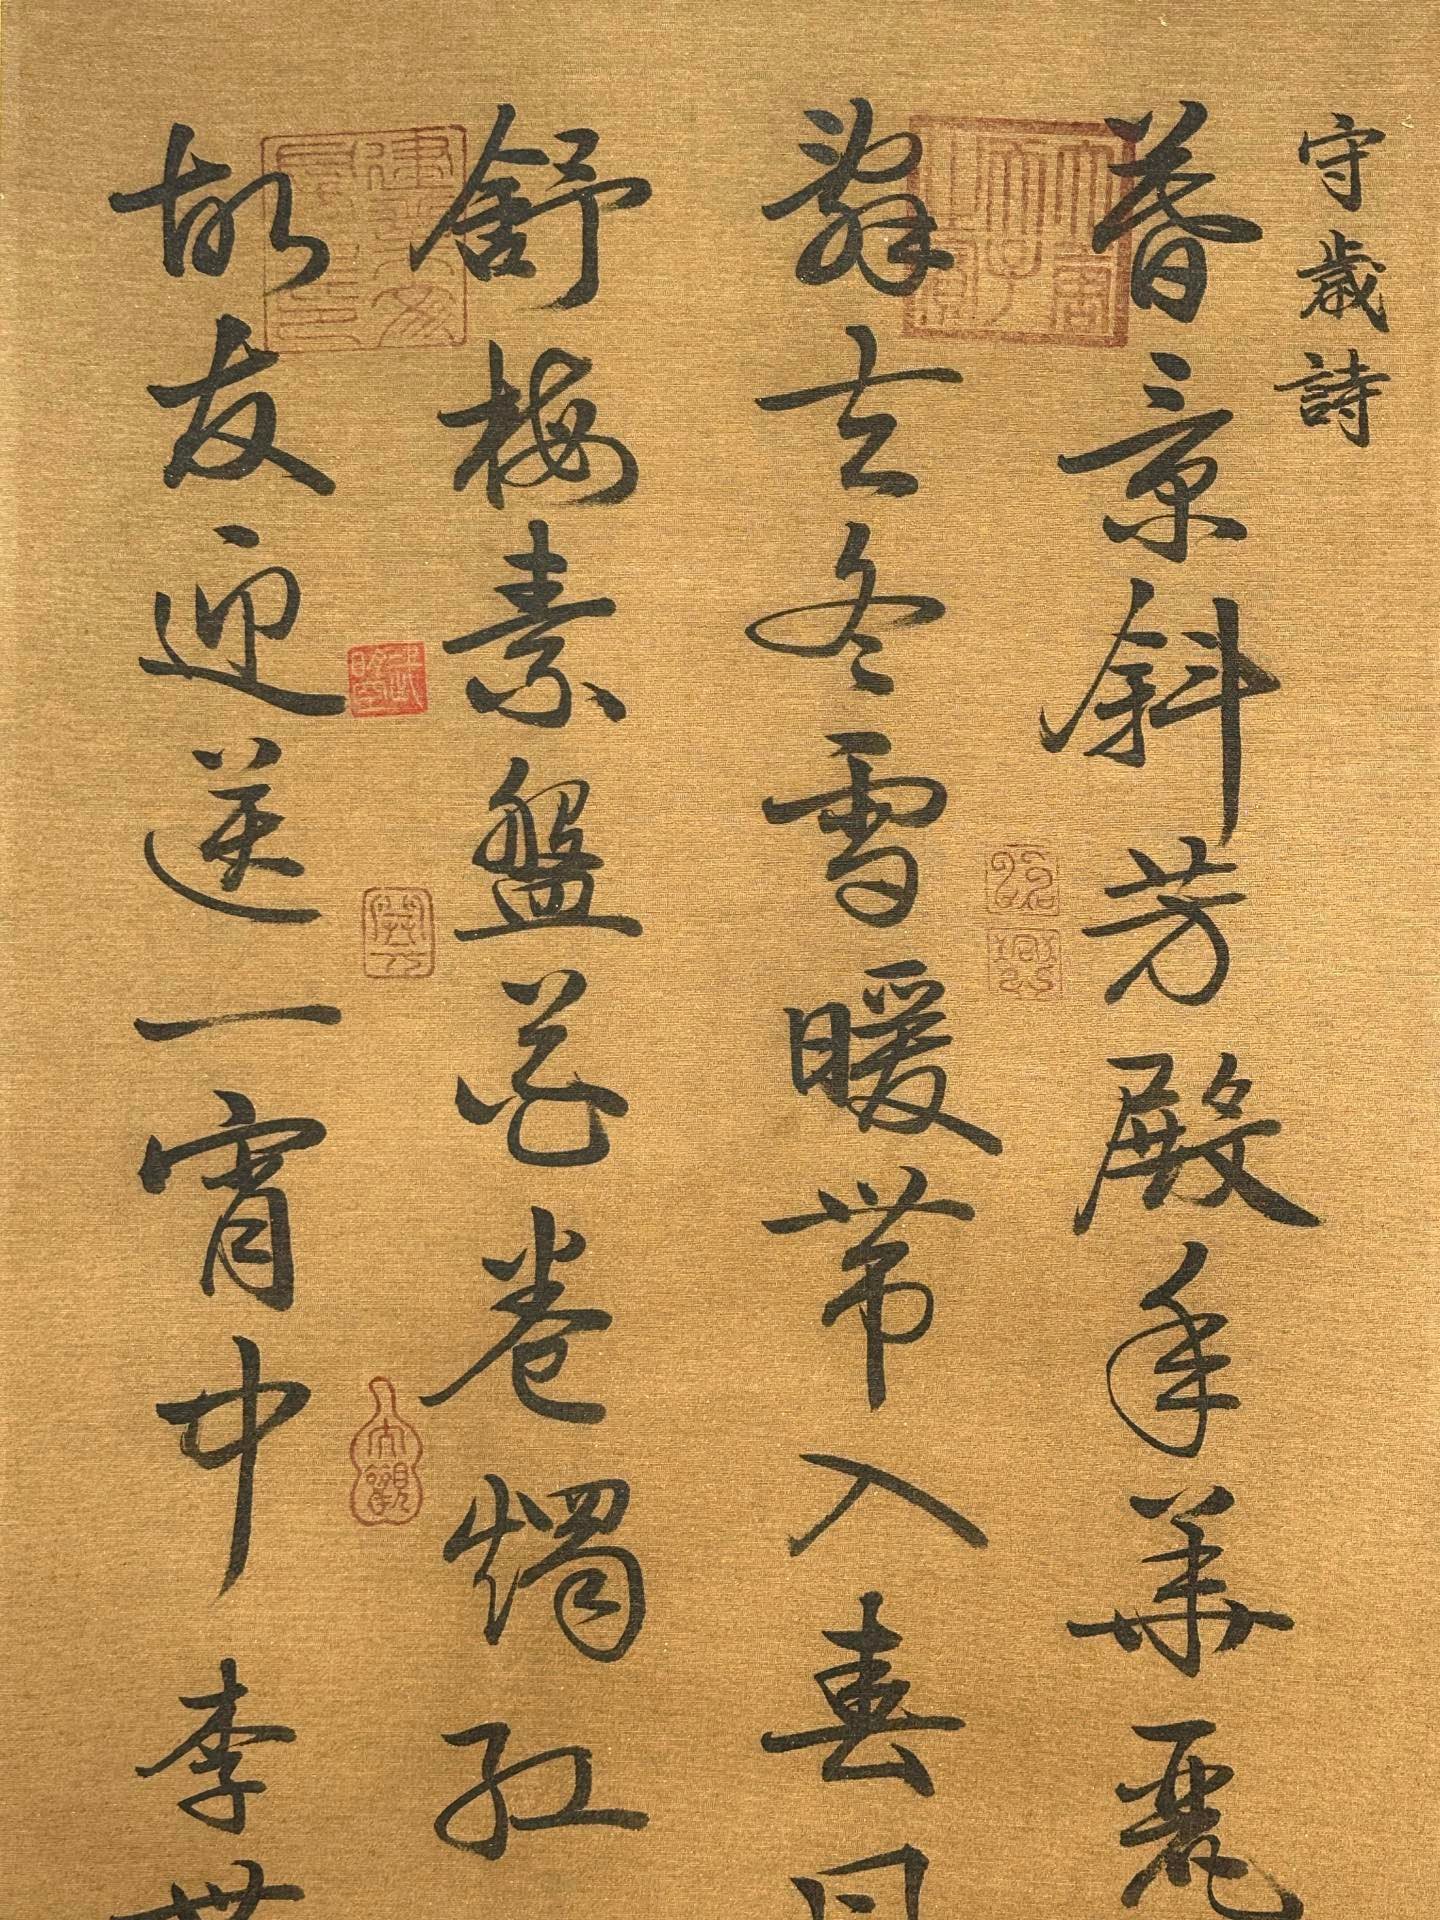 守歲詩
暮景斜芳殿年華麗
辭去冬雪暖帶入春
舒梅素盤花卷燭紅
故歲迎送一宵中 李世
大觀